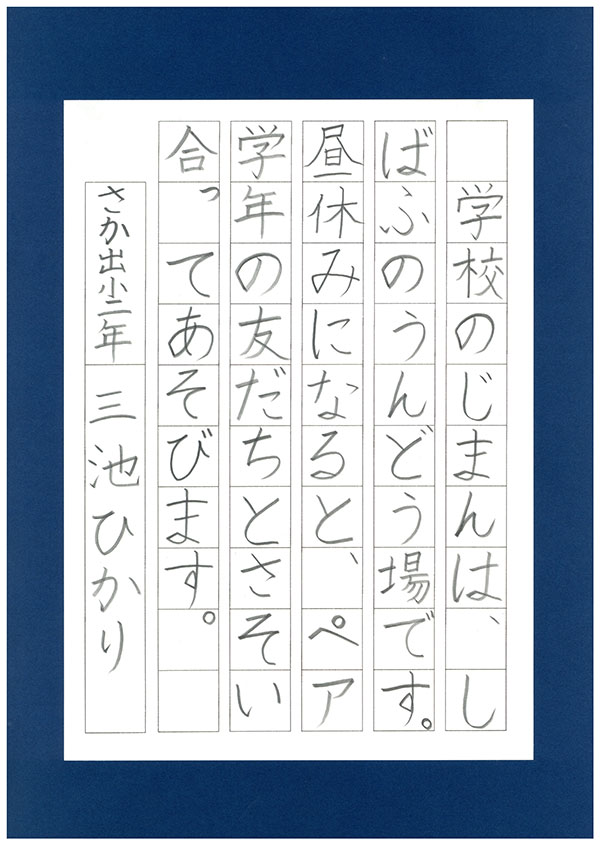 学校のじまんは、し
ばふのうんどう場です。
昼休みになると、ペア
学年の友だちとさそい
合ってあそびます。
さか出小二年 三池ひかり